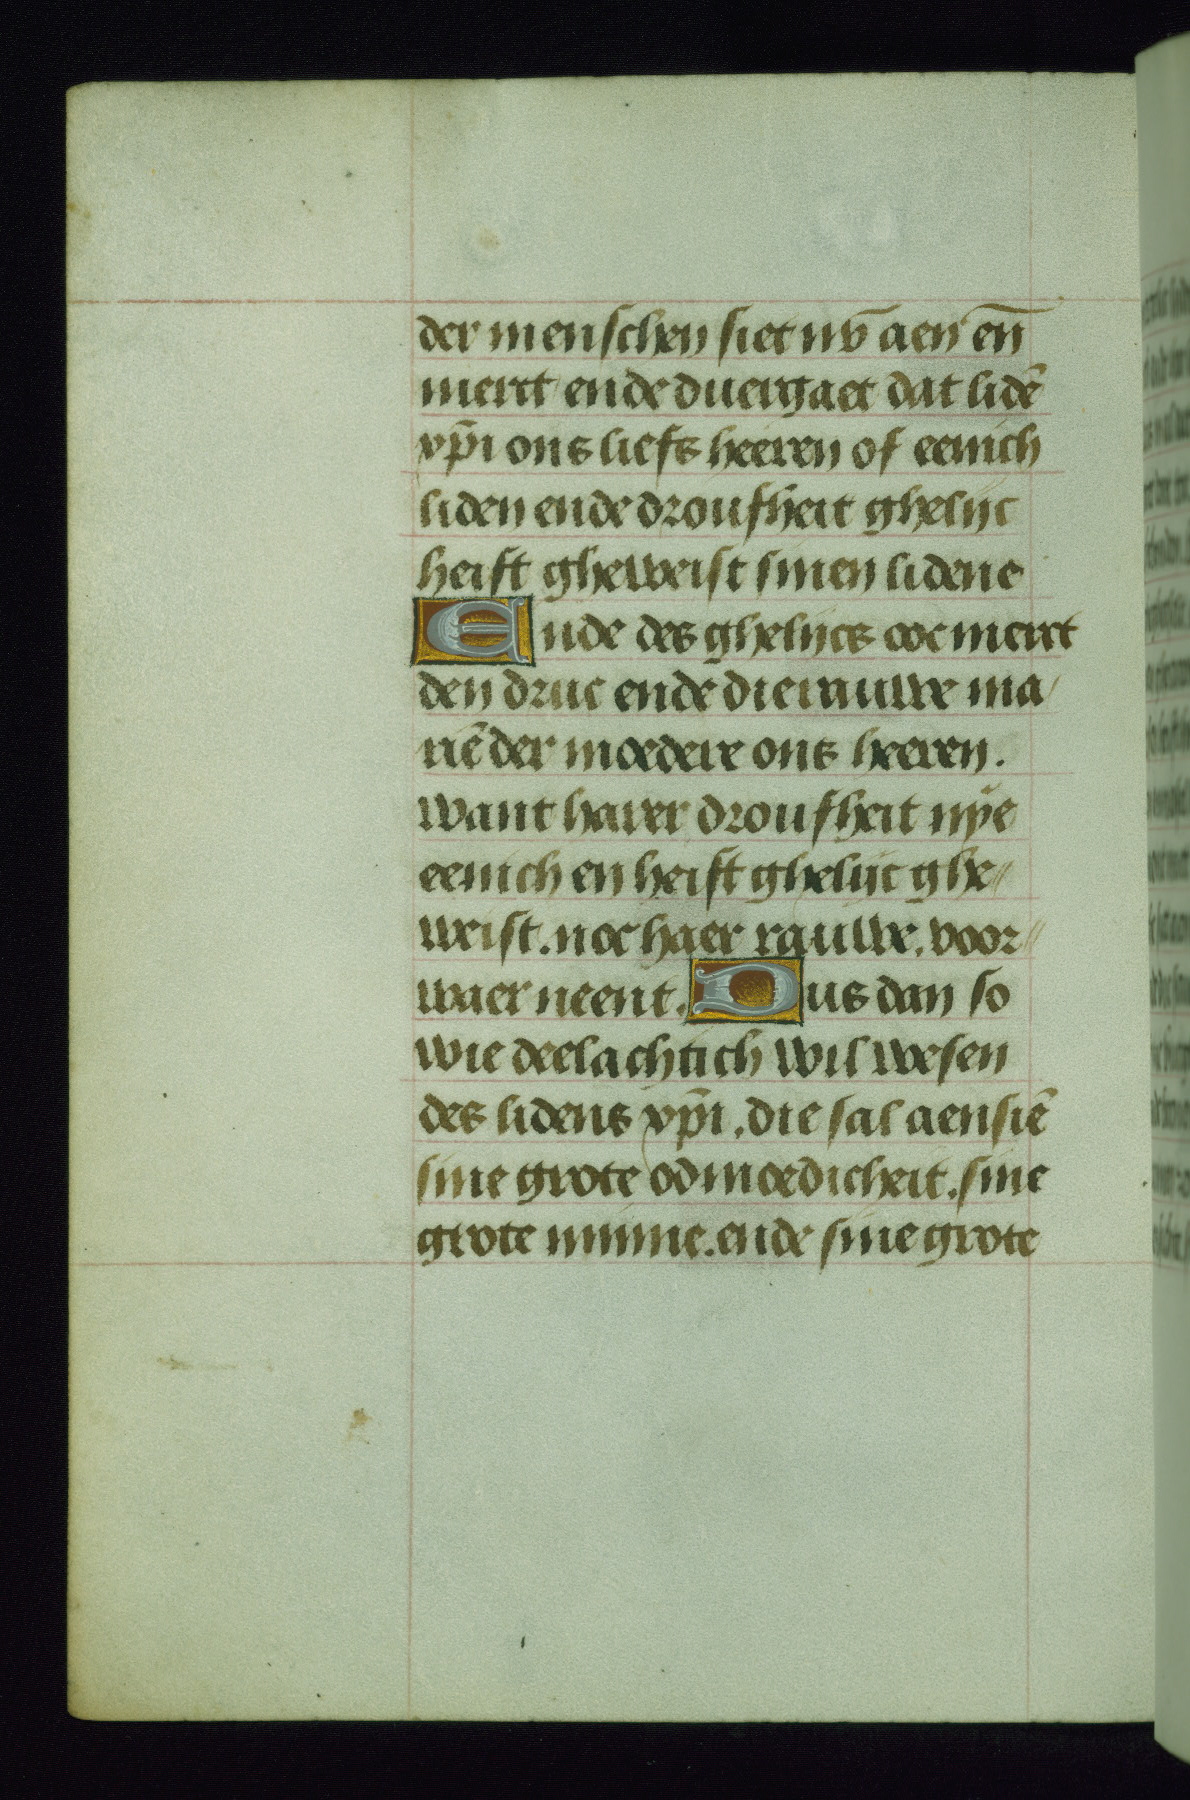 der menschen siet nv̄ aen en̄
merct ende duergaet dat lidē
xp̄i ons liefs heeren of eenich
liden ende droufheit ghelijc
heift gheweist sinen lidene
Ende des ghelijcs ooc merct
den druc ende die rauwe ma/
riē der moedere ons heeren.
want harer droufheit nye
eenich en heift ghelijc ghe//
weist. noc haer rauwe. voor//
waer neent. Dus dan so
wie deelachtich wil wesen
des lidens xp̄i. die sal aensiē
sine grote odmoedicheit. sine
grote minne. ende sine grote